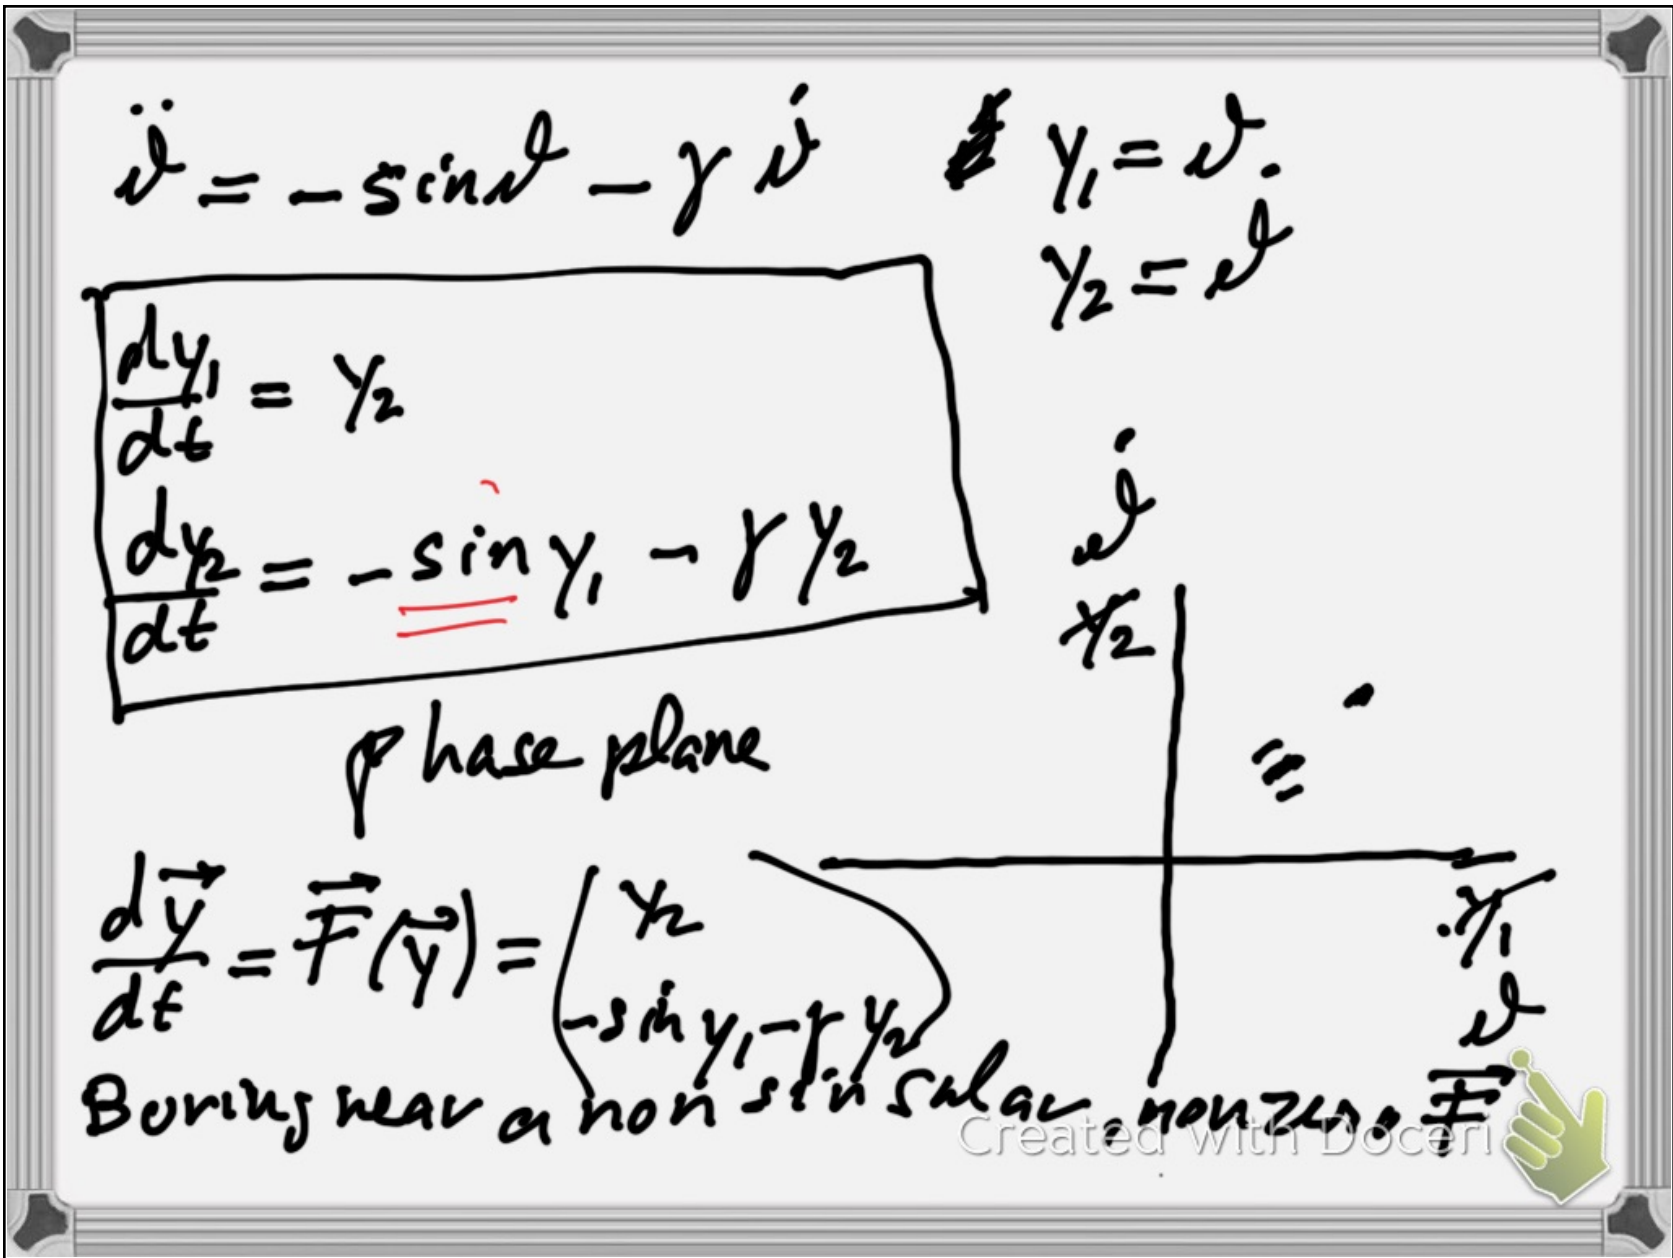 ϑ̈ = - sinϑ - γ ϑ̇
y₁ = ϑ
y₂ = ϑ̇
dy₁/dt = y₂
dy₂/dt = - sin y₁ - γ y₂
ϑ̇
y₂
phase plane
y₁
ϑ
dy⃗/dt = F⃗(y⃗) = ( y₂
-sin y₁ - γ y₂ )
Boring near a non singular, nonzero F⃗
Created with Doceri